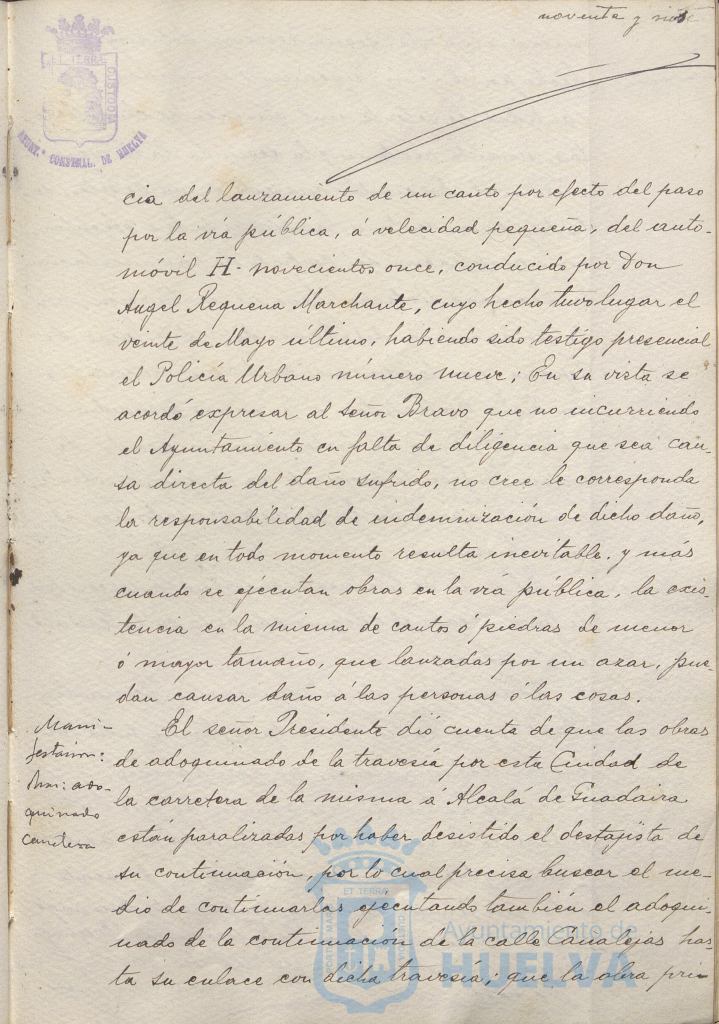 noventa y siete
ET TERRA
CUSTODIA
AYUNT.º CONSTNAL. DE HUELVA
cia del lanzamiento de un canto por efecto del paso
por la vía pública, á velocidad pequeña, del auto-
móvil H- novecientos once, conducido por Don
Angel Requena Marchante, cuyo hecho tuvo lugar el
veinte de Mayo último, habiendo sido testigo presencial
el Policía Urbano número nueve; En su vista se
acordó expresar al Señor Bravo que no incurriendo
el Ayuntamiento en falta de diligencia que sea cau-
sa directa del daño sufrido, no cree le corresponda
la responsabilidad de indemnización de dicho daño,
ya que en todo momento resulta inevitable, y más
cuando se ejecutan obras en la vía pública, la exis-
tencia en la misma de cantos ó piedras de menor
ó mayor tamaño, que lanzadas por un azar, pue-
dan causar daño á las personas ó las cosas.
Mani-
festación:
adoquinado
carretera
El señor Presidente dió cuenta de que las obras
de adoquinado de la travesía por esta Ciudad de
la carretera de la misma á Alcalá de Guadaira
están paralizadas por haber desistido el destajista de
su continuación, por lo cual precisa buscar el me-
dio de continuarlas ejecutando también el adoqui-
nado de la continuación de la calle Canalejas has-
ta su enlace con dicha travesía; que la obra prin-
ET TERRA
Ayuntamiento de
HUELVA